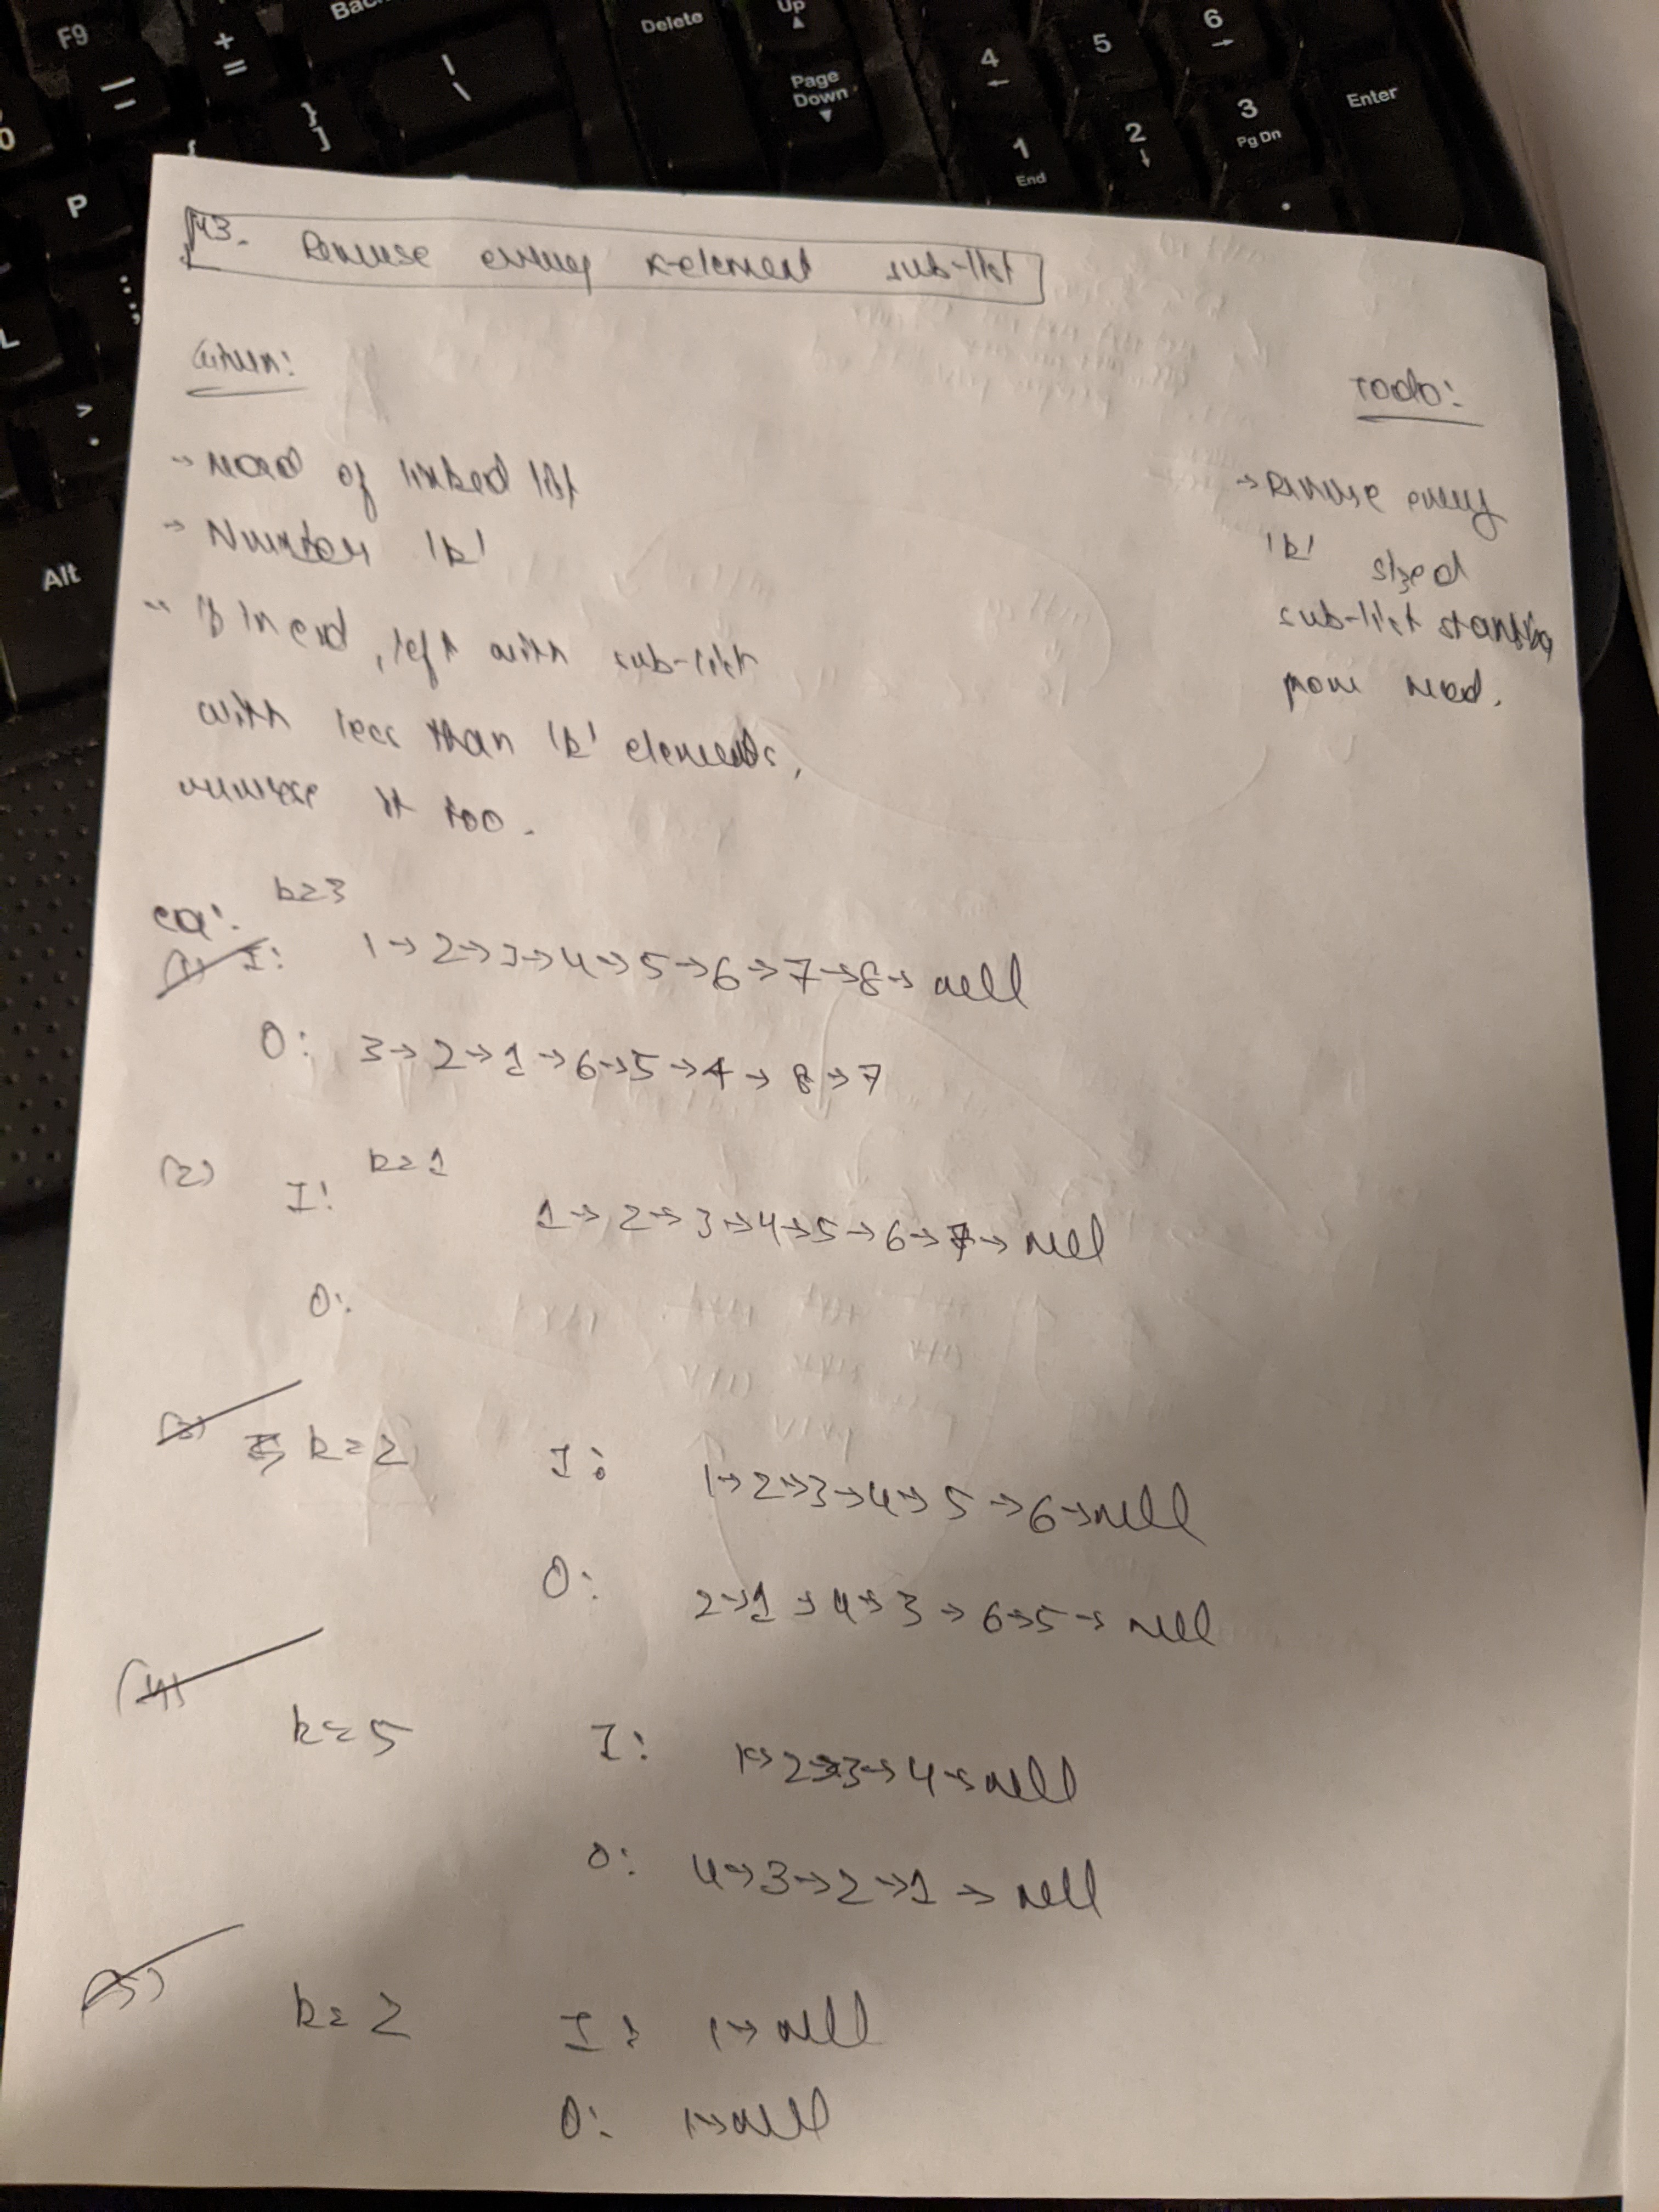 F9
+
=
Bac
|
\
Delete
Up
Page
Down
4
5
6
1
End
2
3
Pg Dn
Enter
}
]
{
P
L
>
.
Alt
43. Reverse every K-element sub-list
Given:
Todo:
→ Head of linked list
→ Number 'k'
→ If in end, left with sub-list
with less than 'k' elements,
reverse it too.
→ Reverse every
'k' sized
sub-list starting
from head.
eg: k=3
(1) I: 1→2→3→4→5→6→7→8→null
O: 3→2→1→6→5→4→8→7
(2) I: k=1 1→2→3→4→5→6→7→null
O:
(3) k=2 I: 1→2→3→4→5→6→null
O: 2→1→4→3→6→5→null
(4)
k=5 I: 1→2→3→4→null
O: 4→3→2→1→null
(5)
k=2 I: 1→null
O: 1→null